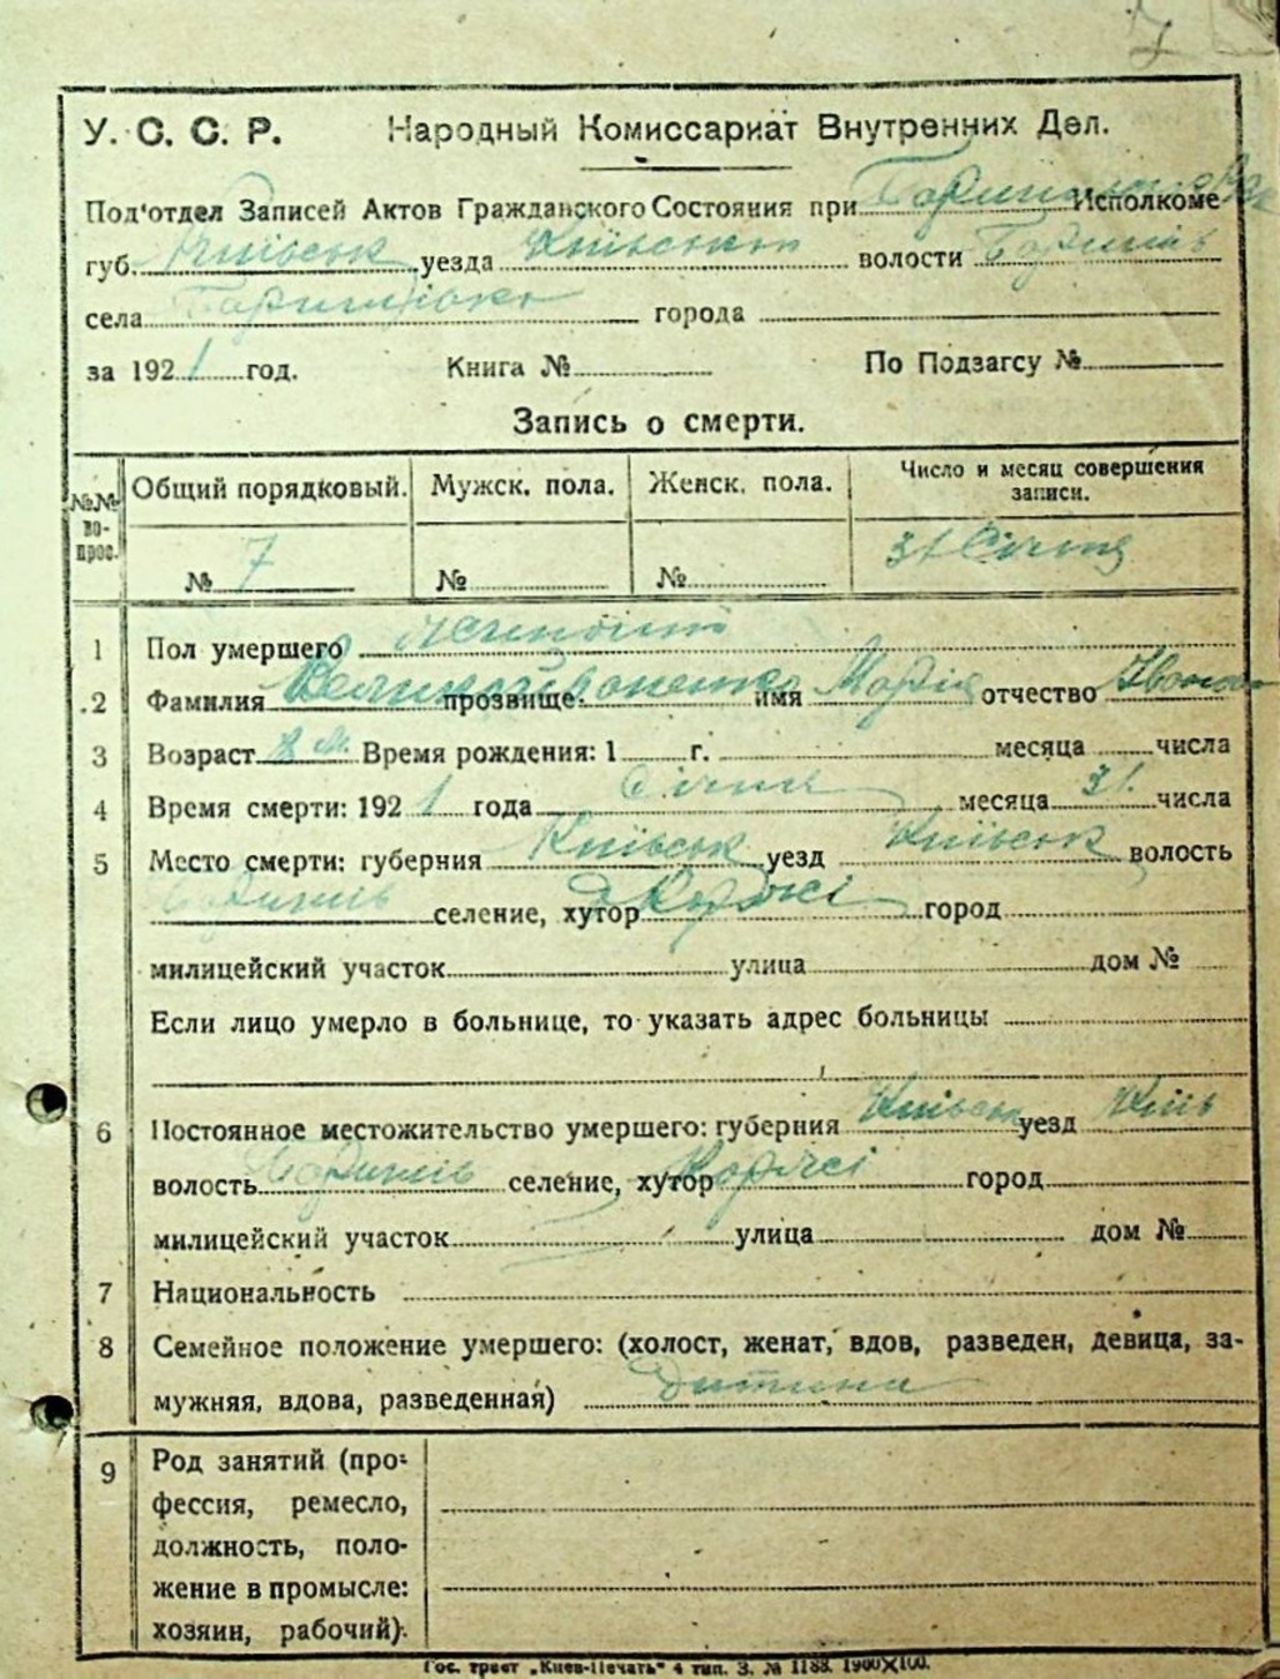 7
У. С. С. Р. Народный Комиссариат Внутренних Дел.
Под'отдел Записей Актов Гражданского Состояния при Исполкоме
губ. Київськ уезда Київський волости Баришів
села Баришівка города
за 1921 год. Книга № По Подзагсу №
Запись о смерти.
№№ вопрос. Общий порядковый. Мужск. пола. Женск. пола. Число и месяц совершения записи.
№ 7 № № 31 Січня
1 Пол умершего женский
2 Фамилия прозвище имя Марія отчество
3 Возраст м. Время рождения: 1 г. месяца числа
4 Время смерти: 1921 года Січня месяца 31. числа
5 Место смерти: губерния Київськ уезд Київськ волость
Баришів селение, хутор Коржі город
милицейский участок улица дом №
Если лицо умерло в больнице, то указать адрес больницы
6 Постоянное местожительство умершего: губерния Київськ уезд Київ
волость Баришів селение, хутор Коржі город
милицейский участок улица дом №
7 Национальность
8 Семейное положение умершего: (холост, женат, вдов, разведен, девица, за-
мужняя, вдова, разведенная) Дитина
9 Род занятий (про-
фессия, ремесло,
должность, поло-
жение в промысле:
хозяин, рабочий).
Гос. трест „Киев-Печать" 4 тип. З. № 1188. 1900×100.